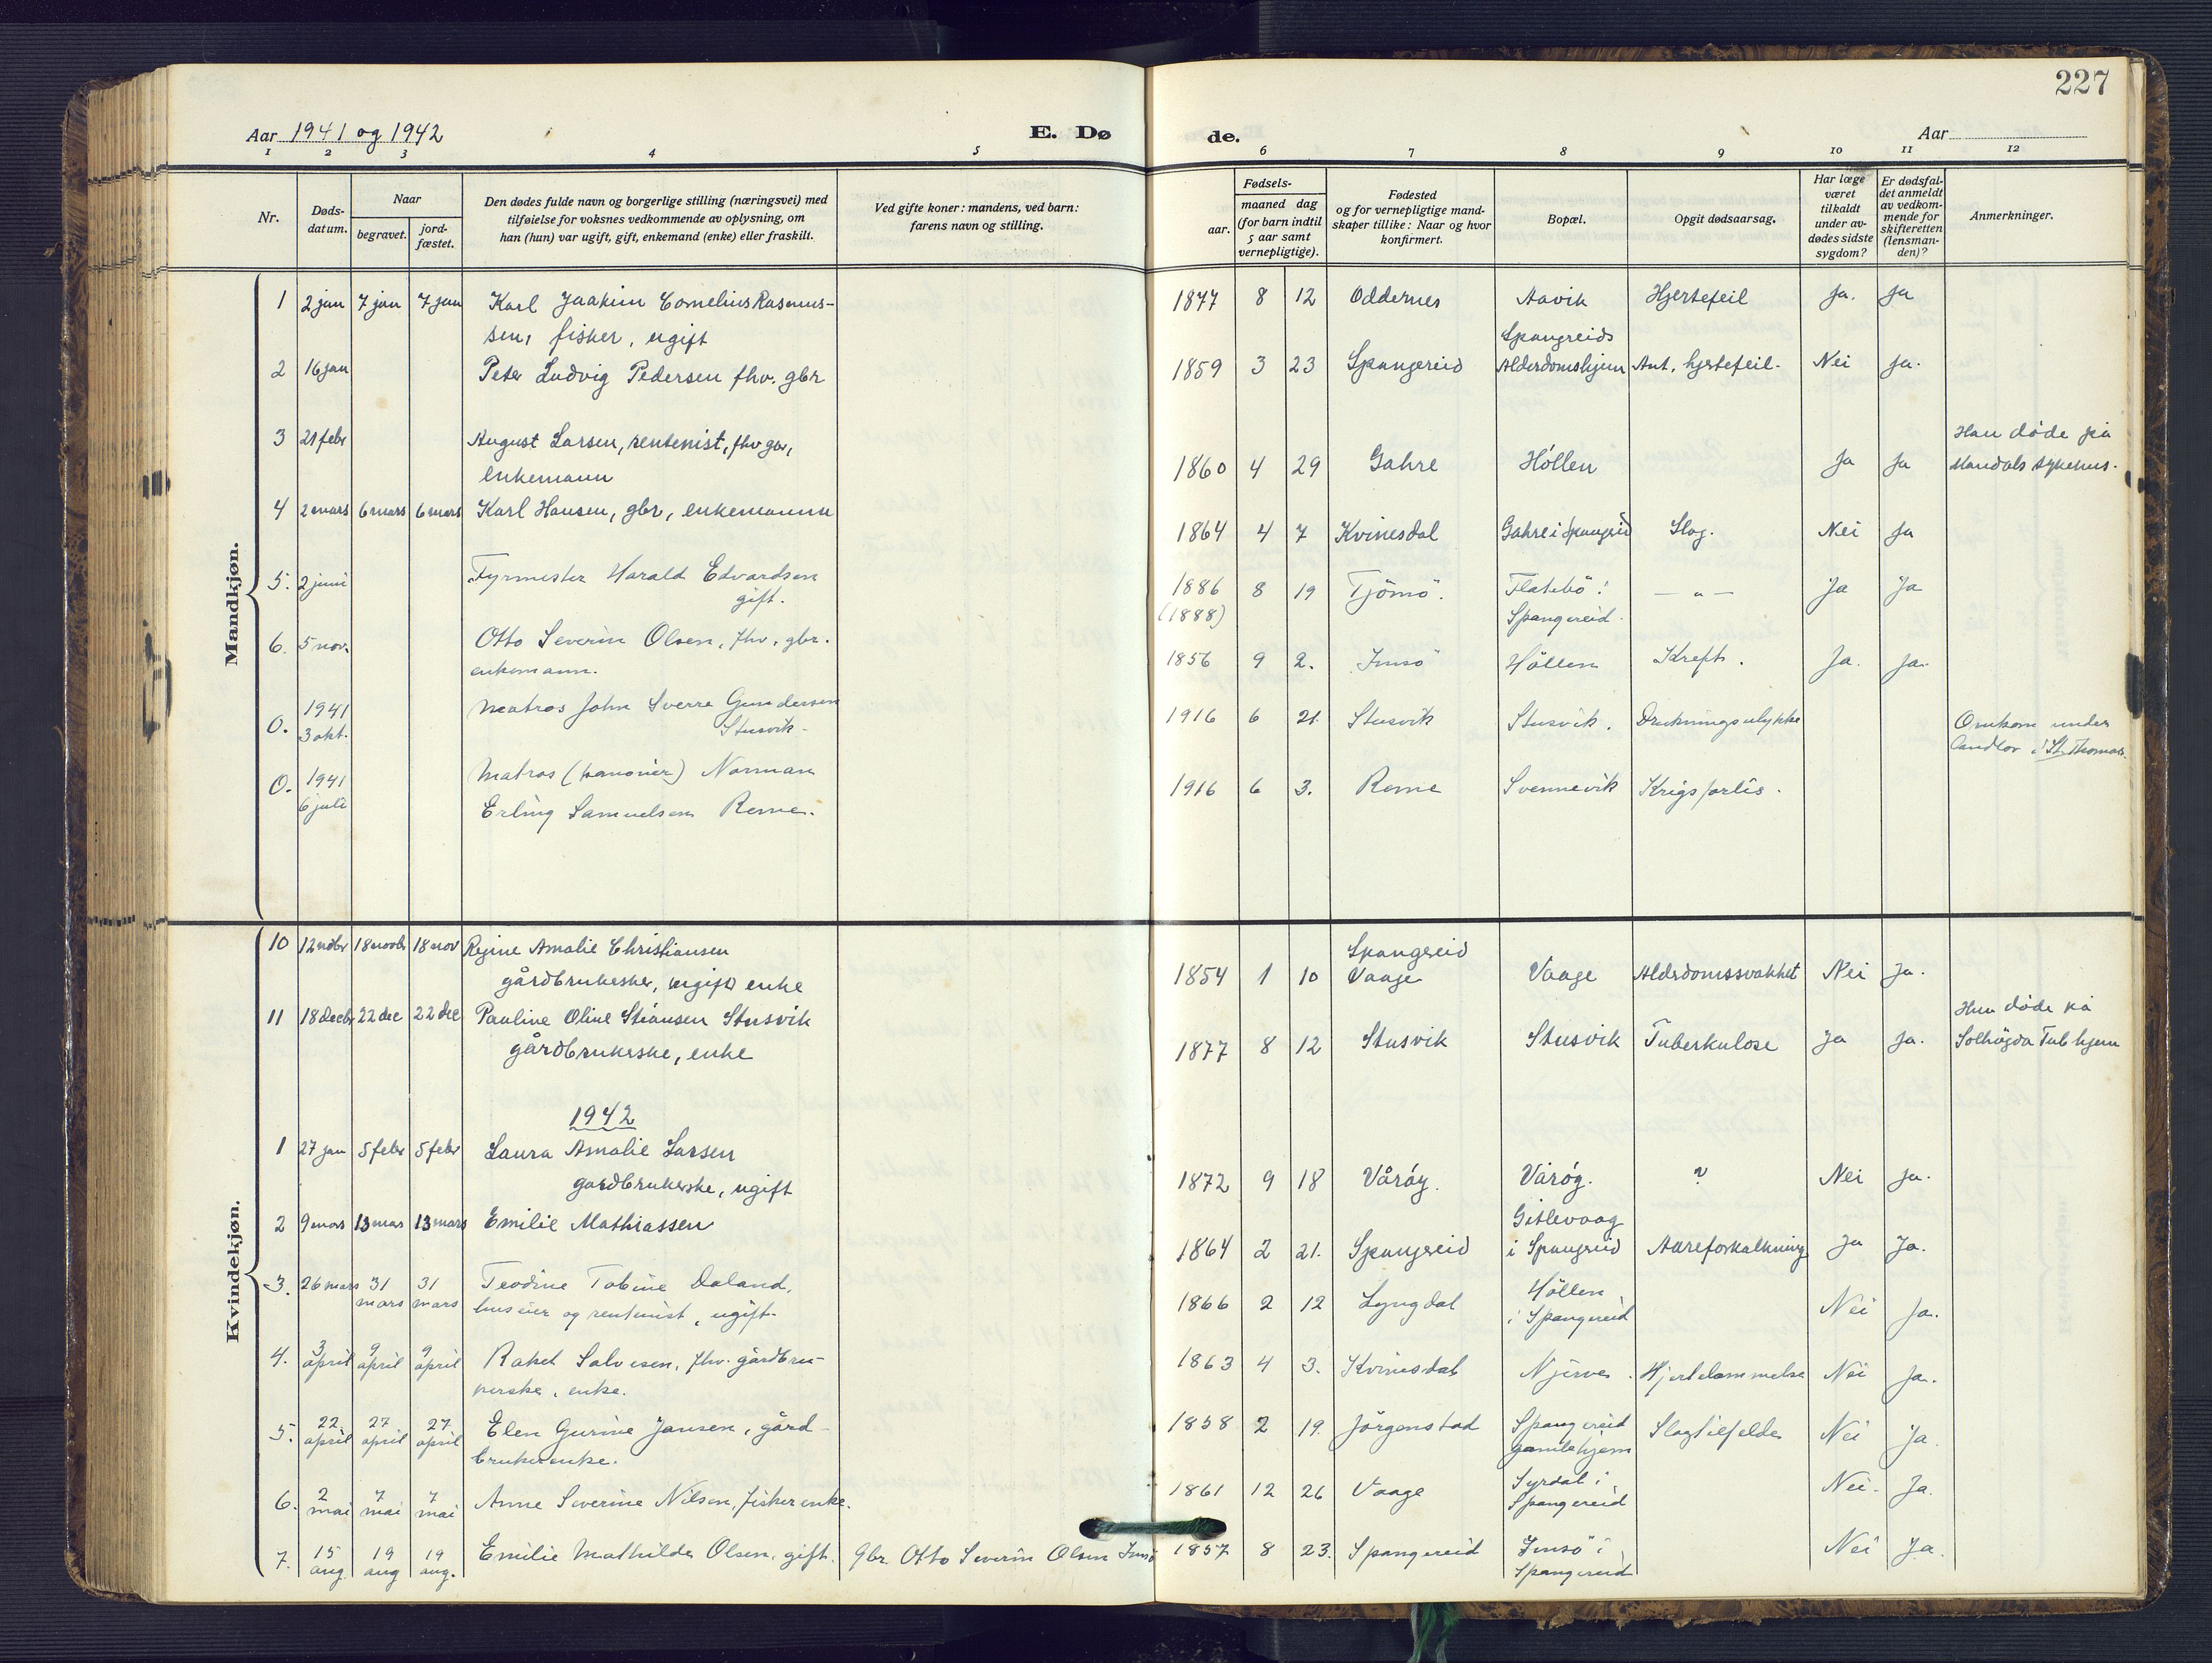 227
Aar 1941 og 1942
E. Dø
de.
Aar
1 2 3 4 5 6 7 8 9 10 11 12
Nr.
Døds-
datum.
Naar
begravet.
jord-
fæstet.
Den dødes fulde navn og borgerlige stilling (næringsvei) med
tilføielse for voksnes vedkommende av oplysning, om
han (hun) var ugift, gift, enkemand (enke) eller fraskilt.
Ved gifte koner: mandens, ved barn:
farens navn og stilling.
Fødsels-
aar.
maaned dag
(for barn indtil
5 aar samt
vernepligtige).
Fødested
og for vernepligtige mand-
skaper tillike: Naar og hvor
konfirmert.
Bopæl.
Opgit dødsaarsag.
Har læge
været
tilkaldt
under av-
dødes sidste
sygdom?
Er dødsfal-
det anmeldt
av vedkom-
mende for
skifteretten
(lensman-
den)?
Anmerkninger.
Mandkjøn.
1 2 jan 7 jan 7 jan Karl Joakim Cornelius Rasmus-
sen, fisker, ugift
1877 8 12 Oddernes Aavik Hjertefeil Ja. Ja
2 16 jan Peter Ludvig Pedersen fhv. gbr
1859 3 23 Spangereid Spangreids
Alderdomshjem Ant. hjertefeil. Nei Ja.
3 21 febr August Larsen, rentenist, fhv gbr,
enkemann
1860 4 29 Gahre Höllen Ja Ja Han döde på
Mandals sykehus.
4 2 mars 6 mars 6 mars Karl Hansen, gbr, enkemann
1864 4 7 Kvinesdal Gahre i Spangreid Slag. Nei Ja
5. 2 juni Fyrmester Harald Edvardsen
gift.
1886
(1888) 8 19 Tjömö. Flatebö i
Spangereid. — " — Ja Ja
6. 5 nov. Otto Severin Olsen, fhv. gbr.
enkemann.
1856 9 2. Imsö Höllen Kreft. Ja. Ja.
0. 1941
3 okt. Matros John Sverre Gundersen
Stusvik
1916 6 21. Stusvik Stusvik. Drukningsulykke Omkom under
landlov i St. Thomas.
0. 1941
6 juli Matros (kanonier) Norman
Erling Samuelsen Reme.
1916 6 3. Reme Svennevik Krigsforlis.
Kvindekjøn.
10 12 nobr 18 novbr 18 nov Regine Amalie Christiansen
gårdbrukerske, ugift enke
1854 1 10 Spangereid
Vaage Vaage Alderdomssvakhet Nei Ja.
11 18 decbr 22 dec 22 dec Pauline Oline Stiansen Stusvik
gårdbrukerske, enke
1877 8 12 Stusvik Stusvik Tuberkulose Ja Ja. Hun döde på
Solhögda Tub hjem
1942
1 27 jan 5 febr 5 febr Laura Amalie Larsen
gardbrukerske, ugift
1872 9 18 Våröy. Våröy. ? Nei Ja.
2 9 mars 13 mars 13 mars Emilie Mathiassen
1864 2 21. Spangreid Gitlevaag
i Spangreid Aareforkalkning Ja Ja.
3. 26 mars 31
mars 31
mars Teodine Tobine Daland,
huseier og rentenist, ugift.
1866 2 12 Lyngdal Höllen
i Spangereid Nei Ja.
4. 3
april 9
april 9
april Rakel Salvesen, fhv. gårdbru-
kerske, enke.
1863 4 3. Kvinesdal Njerve. Hjertelammelse Nei Ja.
5. 22
april 27
april 27
april Elen Gurine Jansen, gård-
brukerenke.
1858 2 19. Jörgenstad Spangereid
gamlehjem Slagtilfelde Nei Ja.
6. 2
mai 7
mai 7
mai Anne Severine Nilsen, fiskerenke.
1861 12 26 Vaage Syrdal i
Spangereid Nei. Ja.
7. 15
aug. 19
aug 19
aug. Emilie Mathilde Olsen, gift. Gbr. Otto Severin Olsen Imsö
1857 8 23. Spangereid Imsö i
Spangereid Nei Ja.